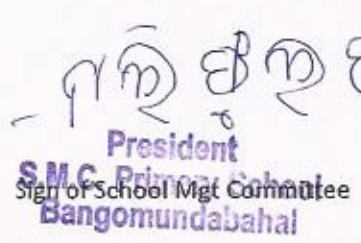 President
S.M.C. Primary School
Sign of School Mgt Committee
Bangomundabahal